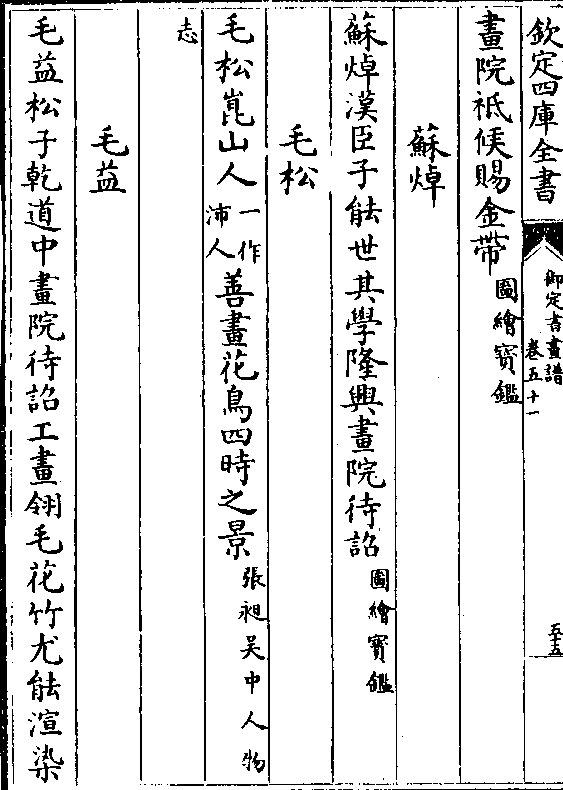 欽定四庫全書
御定書畫譜
卷五十一
五十五
畫院祗候賜金帶圖繪寳鑑
蘇焯
蘇焯漢臣子能世其學隆興畫院待詔圖繪寳鑑
毛松
毛松崑山人一作沛人善畫花鳥四時之景張昶吴中人物
志
毛益
毛益松子乾道中畫院待詔工畫翎毛花竹尤能渲染